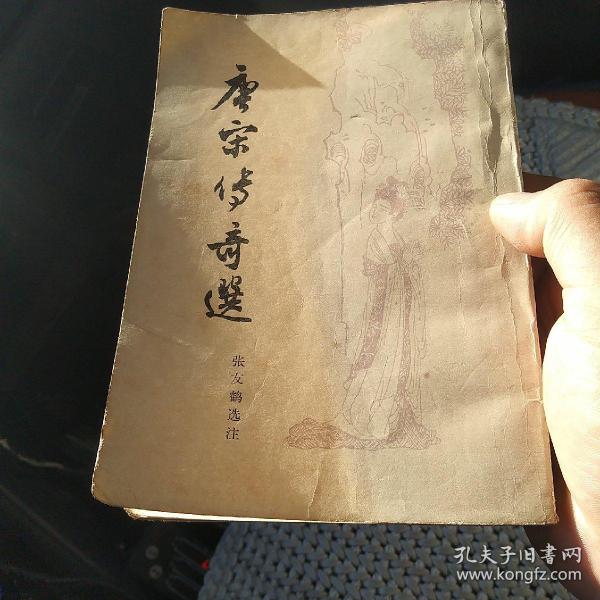 唐宋传奇選
张友鹤选注
孔夫子旧书网
www.kongfz.com